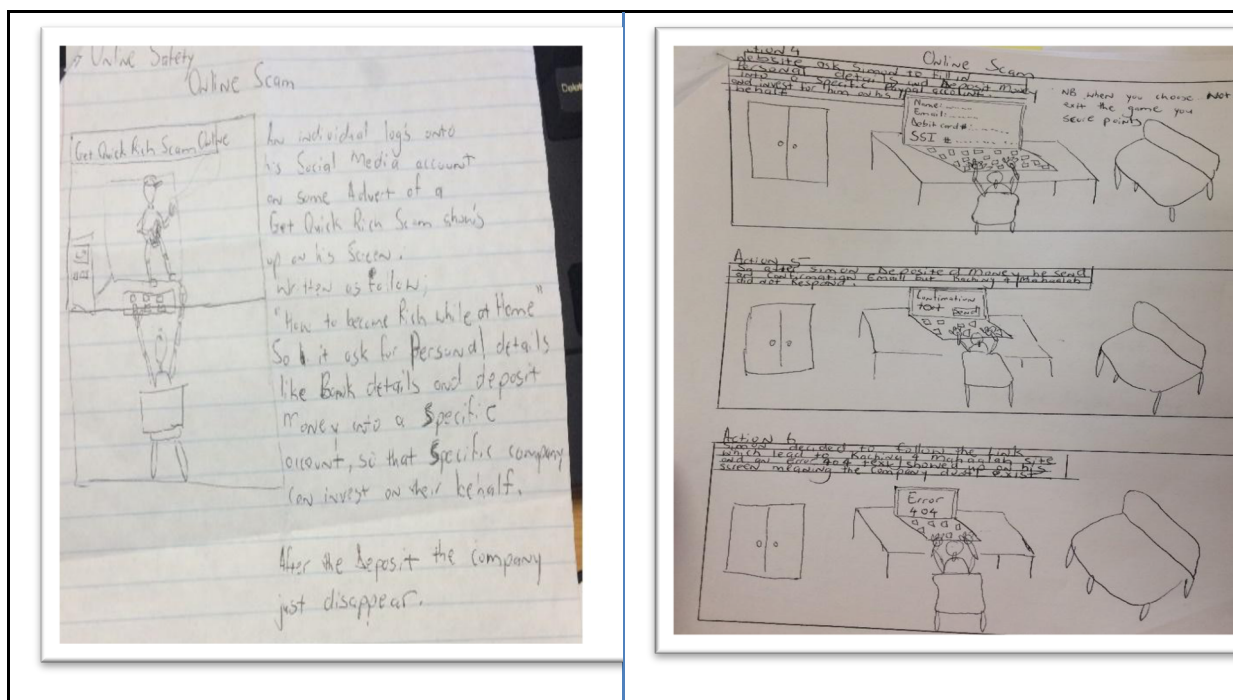 Online Safety
Online Scam
Get Quick Rich Scam Online
An individual log's onto
his Social Media account
on some Advert of a
Get Quick Rich Scam show's
up on his Screen.
Written as follow;
"How to become Rich while at Home"
So it ask for Personal details
like Bank details and deposit
money into a Specific
account, so that Specific company
can invest on their behalf.
After the Deposit the company
just disappear.
Online Scam
Action 4
Website ask Simon to fill in
Personal details and Deposit Money
into a Specific Paypal account.
and invest for them on his
behalf
NB when you choose Not
exit the game you
score points
Name:
Email:
Debit card #:
SSI #
Action 5
So after Simon Deposited Money he send
an Confirmation Email but Kaching & Mahaalah
did not Respond.
Confirmation
text Send
Action 6
Simon decided to follow the Link
which lead to Kaching & Mahaalah site
and an error 404 text showed up on his
screen meaning the company dont exist
Error
404